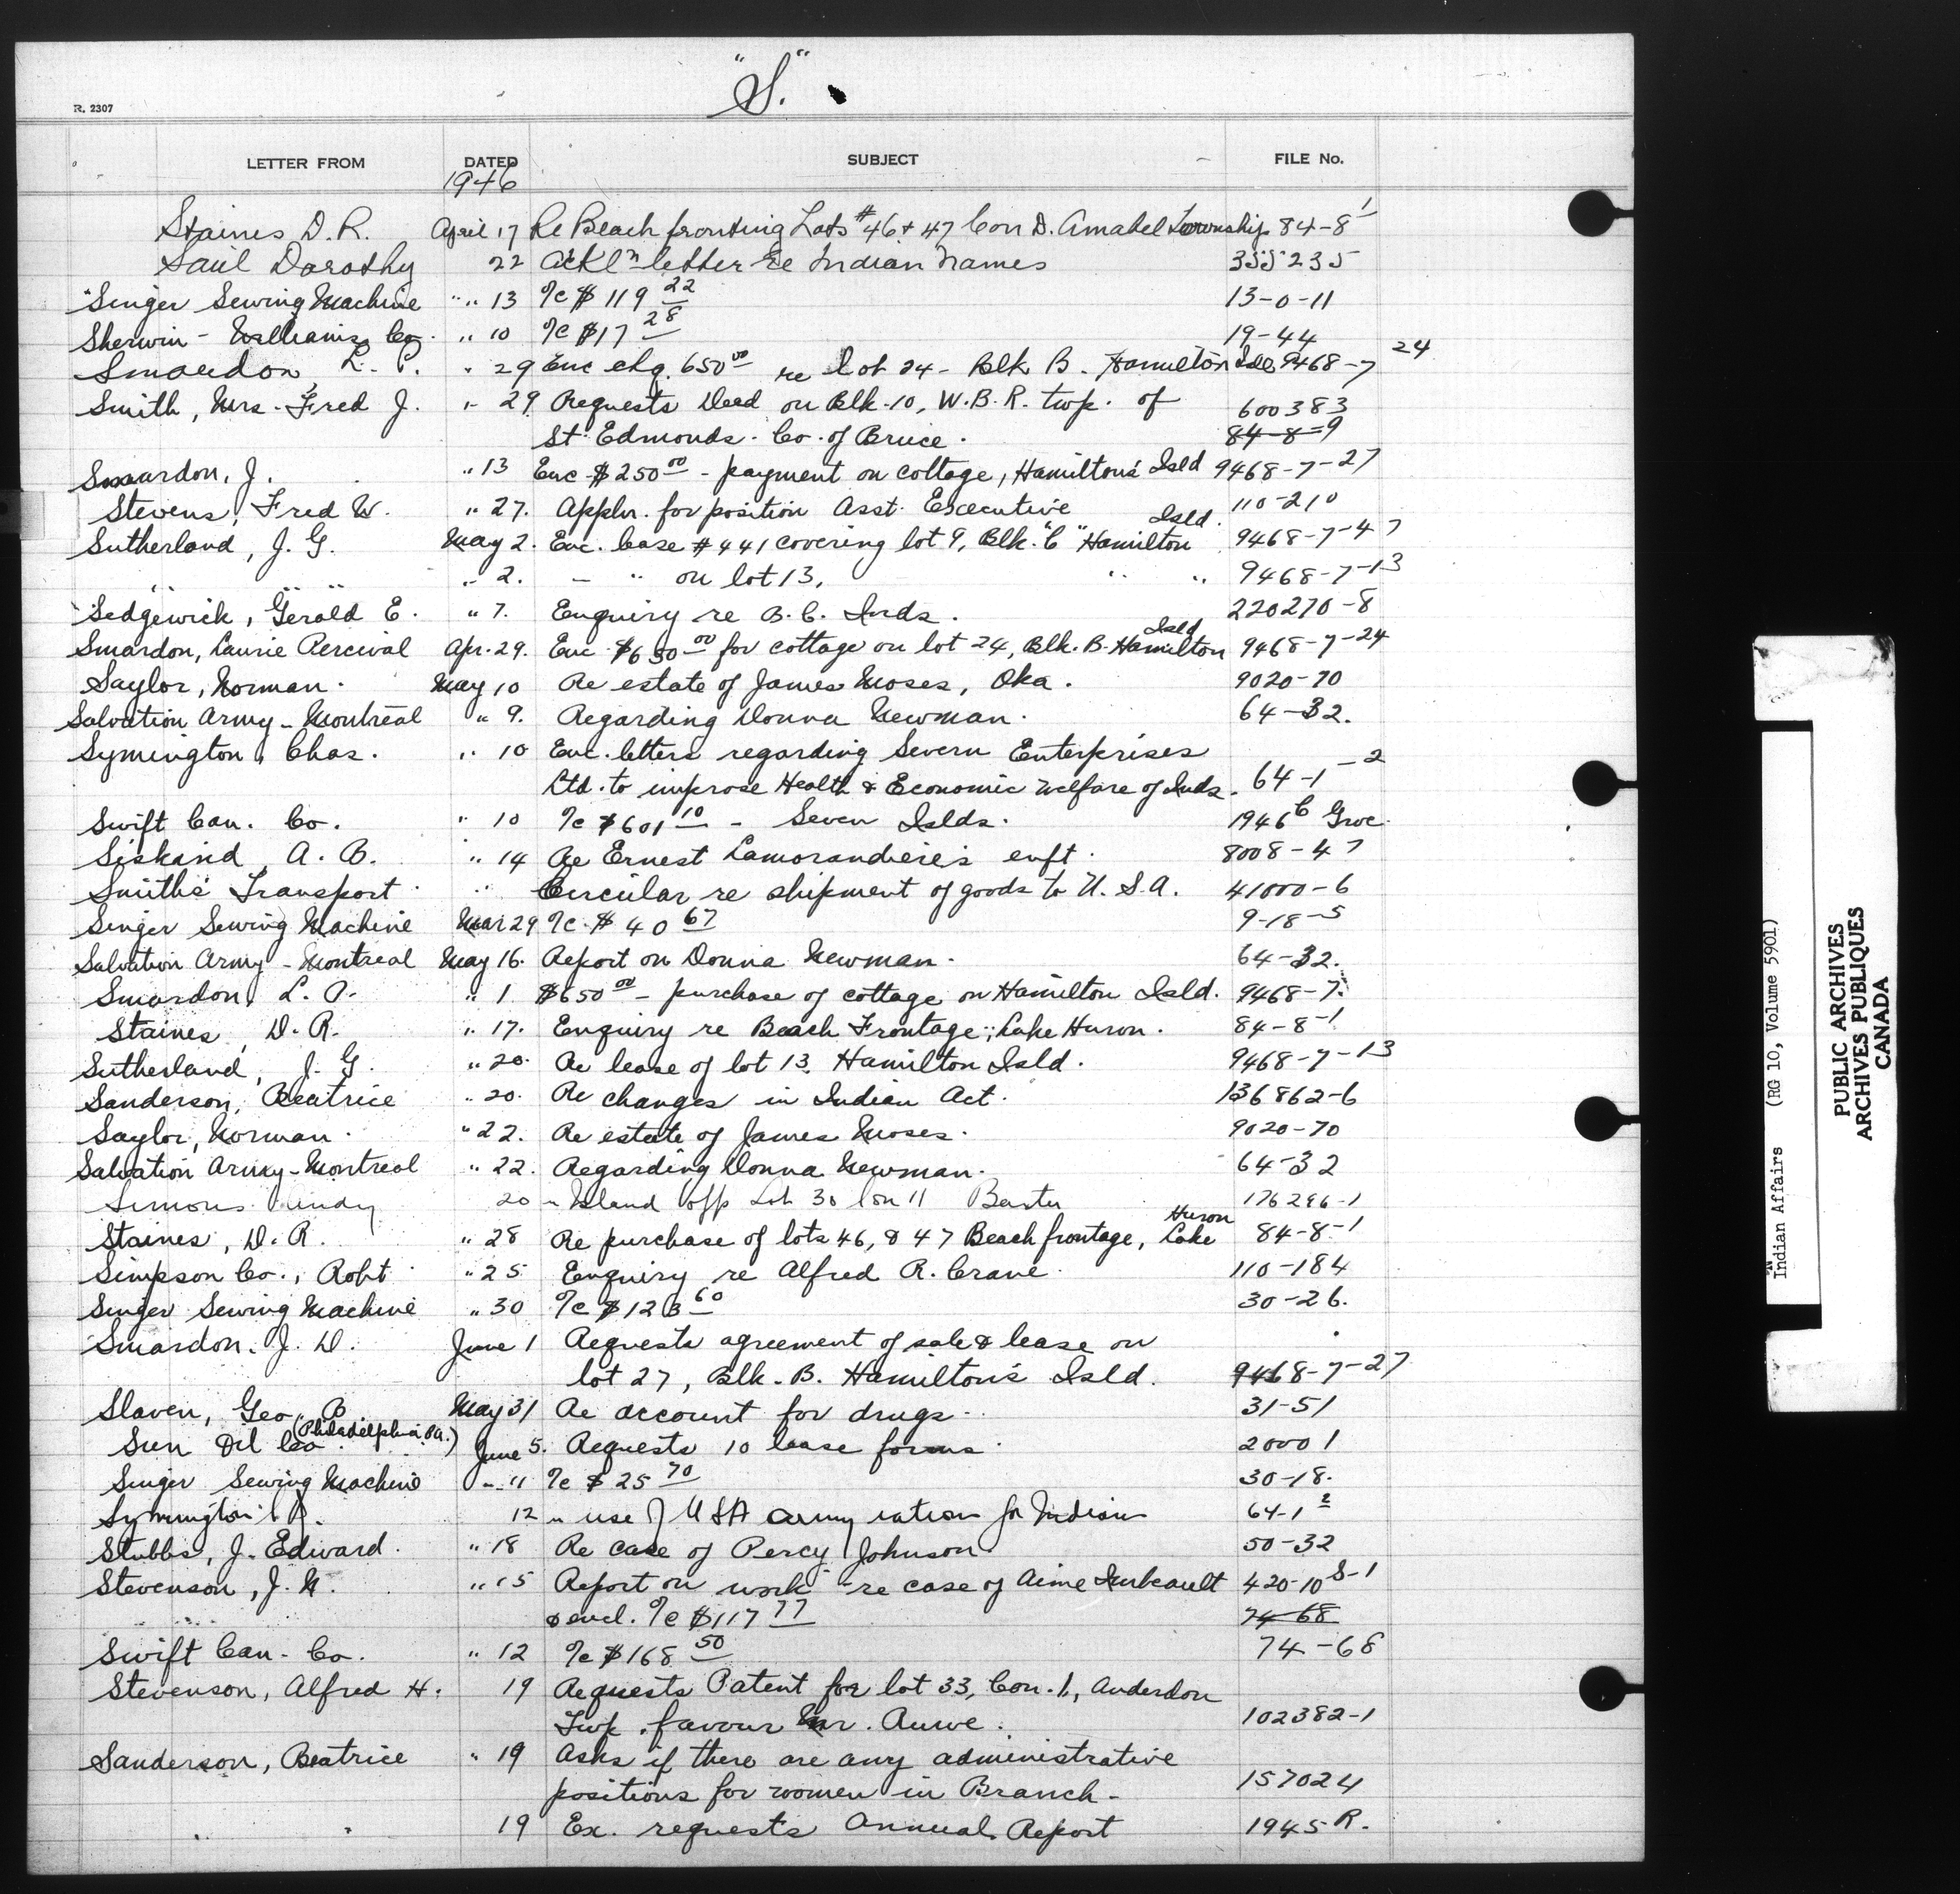 "S."
R. 2307
LETTER FROM DATED SUBJECT FILE No.
1946
Staines D.R. April 17 Re Beach fronting Lots #46 + 47 Con D. Amabel Township 84-8-1
Saul Dorothy 22 Ackln letter re Indian Names 355235
Singer Sewing Machine " 13 %c $119 22 13-0-11
Sherwin-Williams Co. " 10 %c $17 28 19-44
Smardon, L. P. " 29 Enc chq. 650 00 re Lot 24 - Blk B. Hamilton Isld 9468-7-24
Smith, Mrs. Fred J. " 29 Requests Deed on Blk-10, W.B.R. twp. of 600383
St. Edmonds. Co. of Bruce. 84-8-9
Smardon, J. " 13 Enc $250 00 - payment on cottage, Hamilton's Isld 9468-7-27
Stevens, Fred W. " 27. Appln. for position Asst. Executive 110-210
Sutherland, J. G. May 2. Enc. lease #441 covering lot 9, Blk. "C" Hamilton Isld. 9468-7-47
" " " " 2. - " on lot 13. " " 9468-7-13
Sedgewick, Gerald E. " 7. Enquiry re B.C. Inds. 220270-8
Smardon, Laurie Percival Apr. 29. Enc $650 00 for cottage on lot 24, Blk. B. Hamilton Isld 9468-7-24
Saylor, Norman. May 10 Re estate of James Moses, Oka. 9020-70
Salvation Army - Montreal " 9. Regarding Donna Newman. 64-32.
Symington, Chas. " 10 Enc. letters regarding Severn Enterprises
Ltd. to improse Health & Economic Welfare of Inds. 64-1-2
Swift Can. Co. " 10 %c $601 10 - Seven Islds. 1946 C Groc.
Siskind, A. B. " 14 Re Ernest Lamorandiere's enft. 8008-47
Smith's Transport " Circular re shipment of goods to U.S.A. 41000-6
Singer Sewing Machine Mar 29 %c. $40 67 9-18-5
Salvation Army - Montreal May 16. Report on Donna Newman. 64-32.
Smardon, L. P. " 1 $650 00 - purchase of cottage on Hamilton Isld. 9468-7.
Staines, D. R. " 17. Enquiry re Beach Frontage, Lake Huron. 84-8-1
Sutherland, J. G. " 20. Re lease of lot 13. Hamilton Isld. 9468-7-13
Sanderson, Beatrice " 20. Re changes in Indian Act. 136862-6
Saylor, Norman. " 22. Re estate of James Moses. 9020-70
Salvation Army - Montreal " 22. Regarding Donna Newman. 64-32
Simons 20 " Island opp Lot 30 Con 11 Baxter 176296-1
Staines, D. R. " 28 Re purchase of lots 46, & 47 Beach frontage, Lake Huron 84-8-1
Simpson Co., Robt " 25 Enquiry re Alfred R. Crane. 110-184
Singer Sewing Machine " 30 %c $123 60 30-26.
Smardon. J. D. June 1 Requests agreement of sale & lease on
lot 27, Blk. B. Hamilton's Isld. 9468-7-27
Slaven, Geo. B May 31 Re account for drugs 31-51
Sun Oil Co. (Philadelphia Pa.) June 5. Requests 10 lease forms 20001
Singer Sewing Machine " 11 %c $25 70 30-18.
Symington 12 " use of USA army ration for Indians 64-1 2
Stubbs, J. Edward. " 18 Re case of Percy Johnson 50-32
Stevenson, J. N. " 15 Report on work - re case of Aime Imbeault 420-10 S-1
& encl. %c $117 77 74-68
Swift Can. Co. " 12 %c $168 50 74-68
Stevenson, Alfred H. 19 Requests Patent for lot 33, Con. 1, Anderdon
Twp. favour Mr. 102382-1
Sanderson, Beatrice " 19 Asks if there are any administrative
positions for women in Branch - 157024
" " 19 Ex. requests Annual Report 1945 R.
Indian Affairs (RG 10, Volume 5901)
PUBLIC ARCHIVES
ARCHIVES PUBLIQUES
CANADA